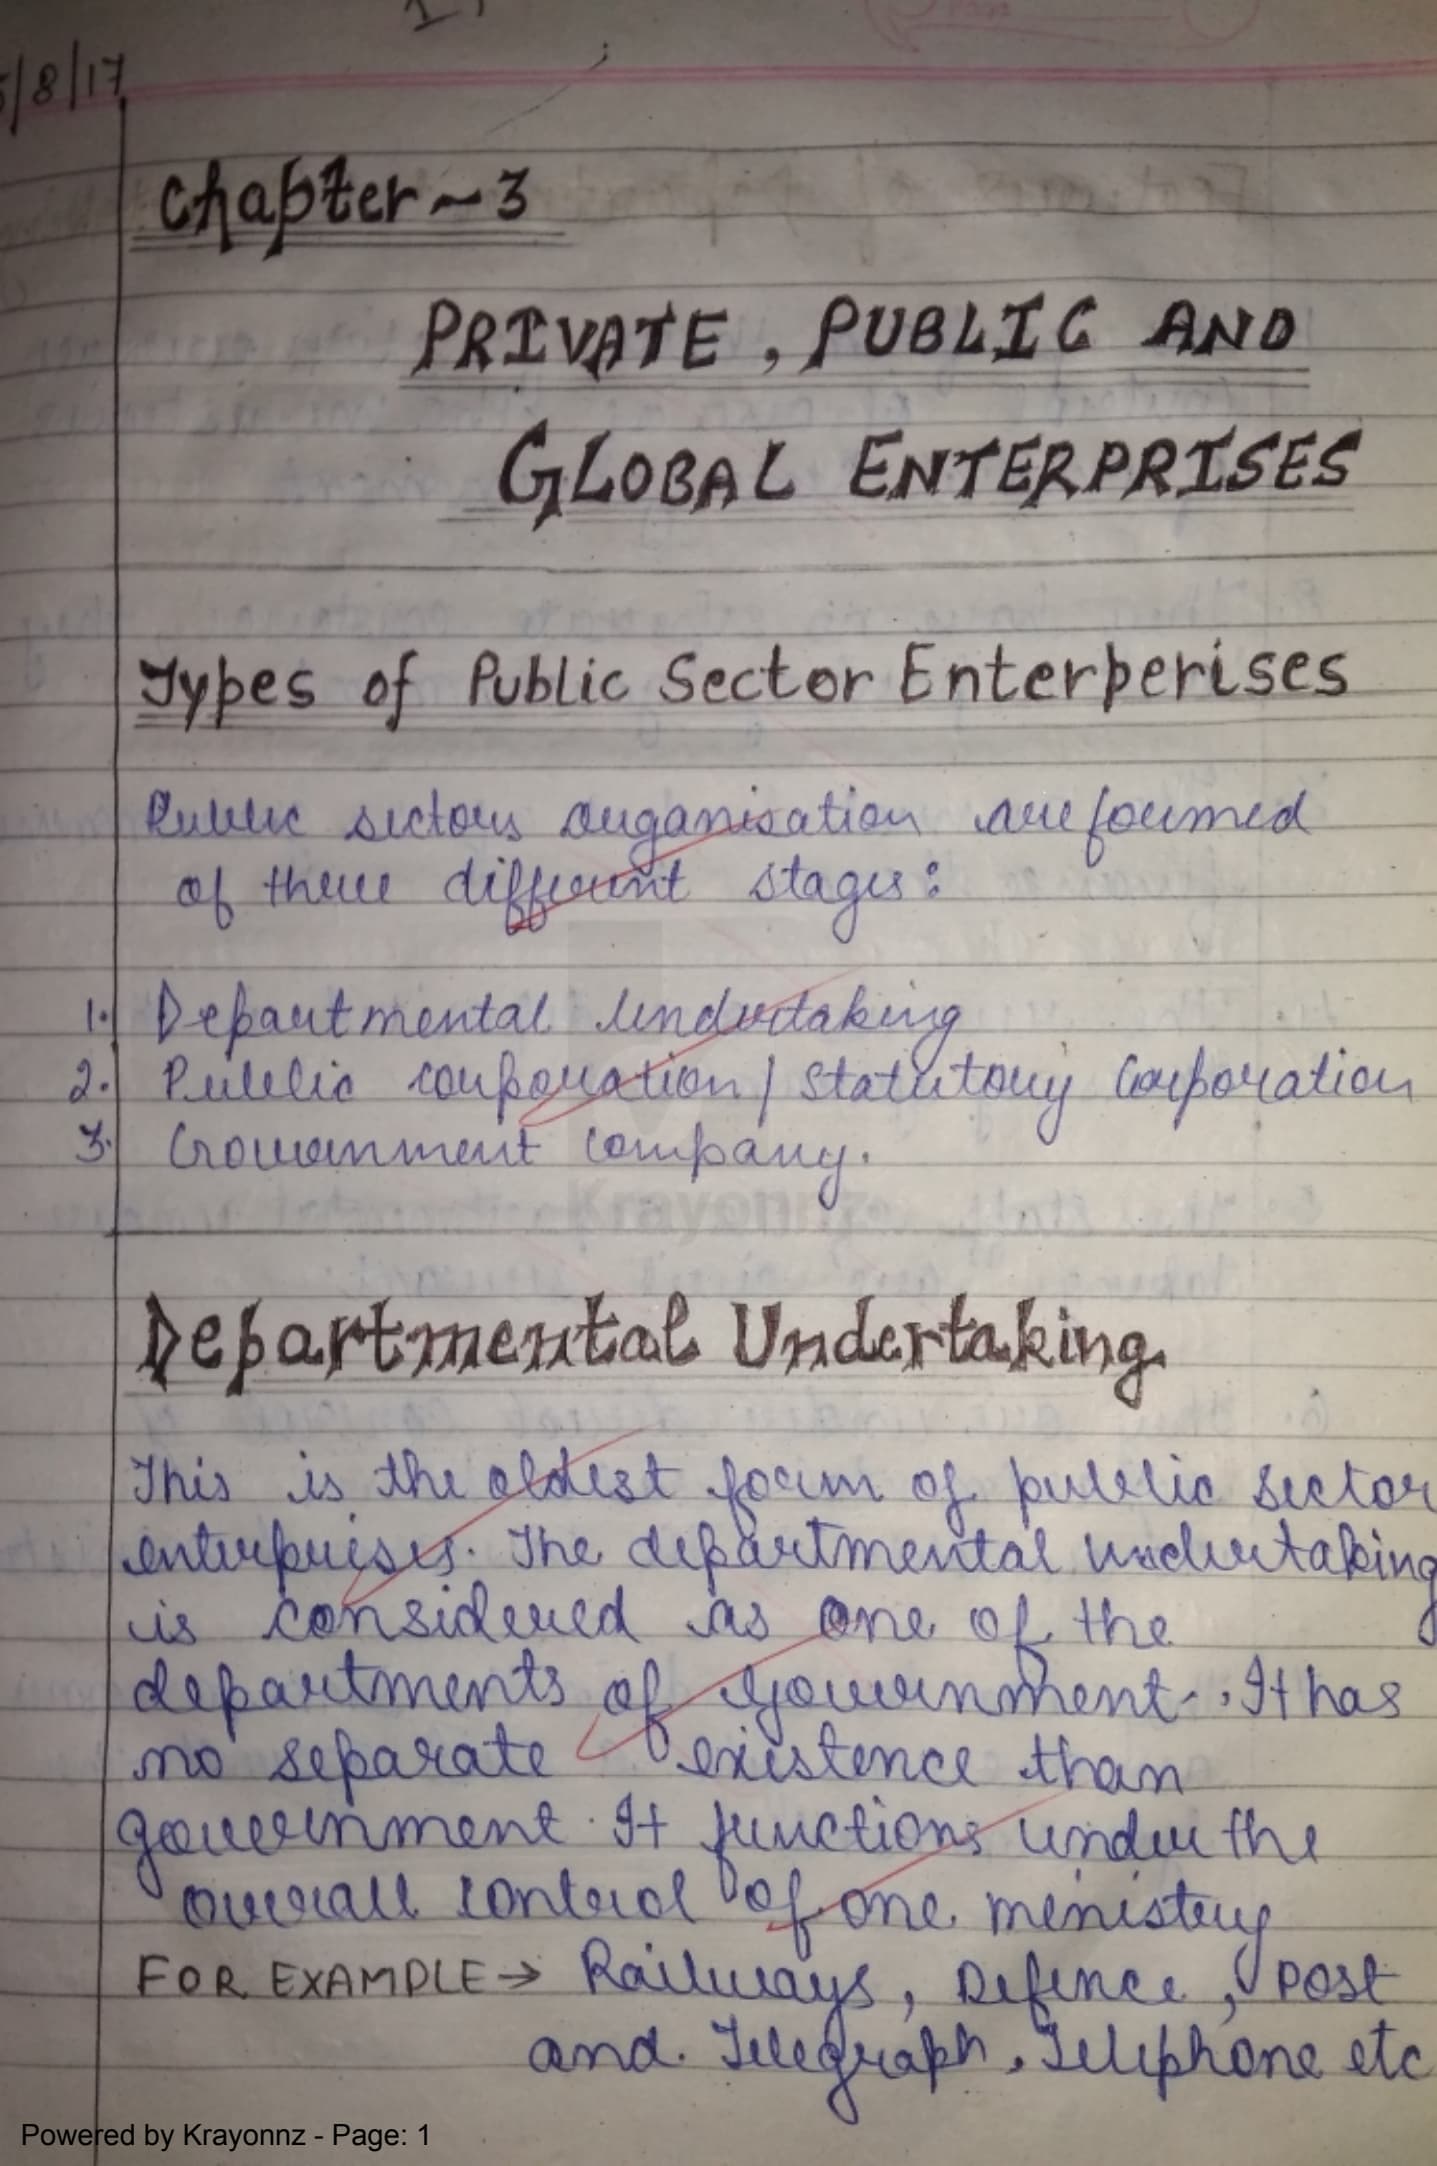 5/8/17
Chapter-3
PRIVATE, PUBLIC AND
GLOBAL ENTERPRISES
Types of Public Sector Enterperises
Public sectors organisation are formed
of three different stages:
1. Departmental Undertaking
2. Public corporation / Statutory Corporation
3. Government company.
Krayonnz
Departmental Undertaking
This is the oldest form of public sector
enterprises. The departmental undertaking
is considered as one of the
departments of government. It has
no separate existence than
government. It functions under the
overall control of one menistery
FOR EXAMPLE → Railways, Defence, Post
and Telegraph, Telephone etc
Powered by Krayonnz - Page: 1